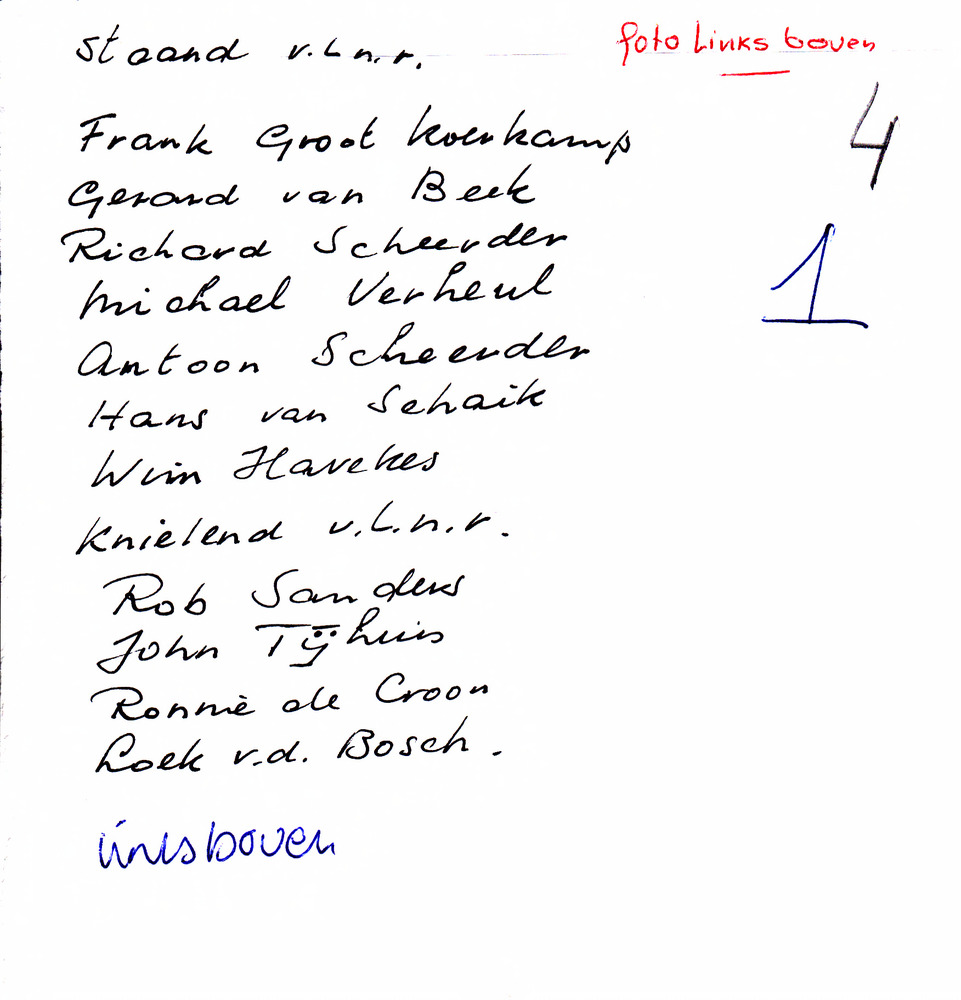 staand v.l.n.r.
foto Links boven
4
1
Frank Groot Koerkamp
Gerard van Beek
Richard Scheerder
Michael Verheul
Antoon Scheerder
Hans van Schaik
Wim Havekes
Knielend v.l.n.r.
Rob Sanders
John Tijhuis
Ronnie de Croon
Loek v.d. Bosch.
linksboven